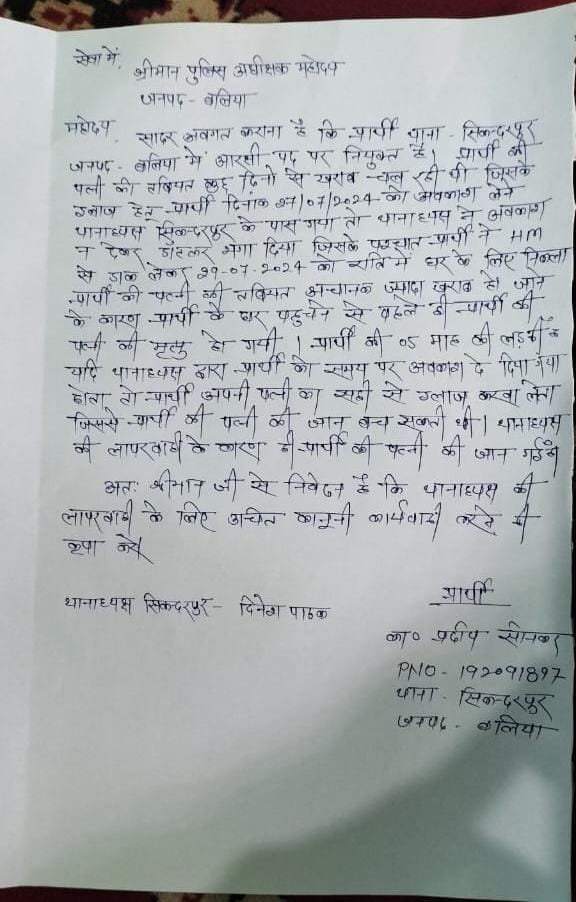 सेवा में,
श्रीमान पुलिस अधीक्षक महोदय
जनपद - बलिया
महोदय,
सादर अवगत कराना है कि प्रार्थी थाना - सिकन्दरपुर
जनपद - बलिया में आरक्षी पद पर नियुक्त है। प्रार्थी की
पत्नी की तबियत कुछ दिनो से खराब चल रही थी जिसके
इलाज हेतु प्रार्थी दिनांक 27/07/2024 को अवकाश लेने
थानाध्यक्ष सिकन्दरपुर के पास गया तो थानाध्यक्ष ने अवकाश
न देकर डाँटकर भगा दिया जिसके पश्चात प्रार्थी ने HM
से डाक लेकर 29-07-2024 को रात्रि में घर के लिए निकला
प्रार्थी की पत्नी की तबियत अचानक ज्यादा खराब हो जाने
के कारण प्रार्थी के घर पहुचने से पहले ही प्रार्थी की
पत्नी की मृत्यु हो गयी। प्रार्थी की 05 माह की लड़की है
यदि थानाध्यक्ष द्वारा प्रार्थी को समय पर अवकाश दे दिया गया
होता तो प्रार्थी अपनी पत्नी का सही से इलाज करवा लेता
जिससे प्रार्थी की पत्नी की जान बच सकती थी। थानाध्यक्ष
की लापरवाही के कारण ही प्रार्थी की पत्नी की जान गई है।
अतः श्रीमान जी से निवेदन है कि थानाध्यक्ष की
लापरवाही के लिए उचित कानूनी कार्यवाही करने की
कृपा करें
प्रार्थी
थानाध्यक्ष सिकन्दरपुर - दिनेश पाठक
का० प्रदीप सोनकर
PNO - 192091897
थाना - सिकन्दरपुर
जनपद - बलिया